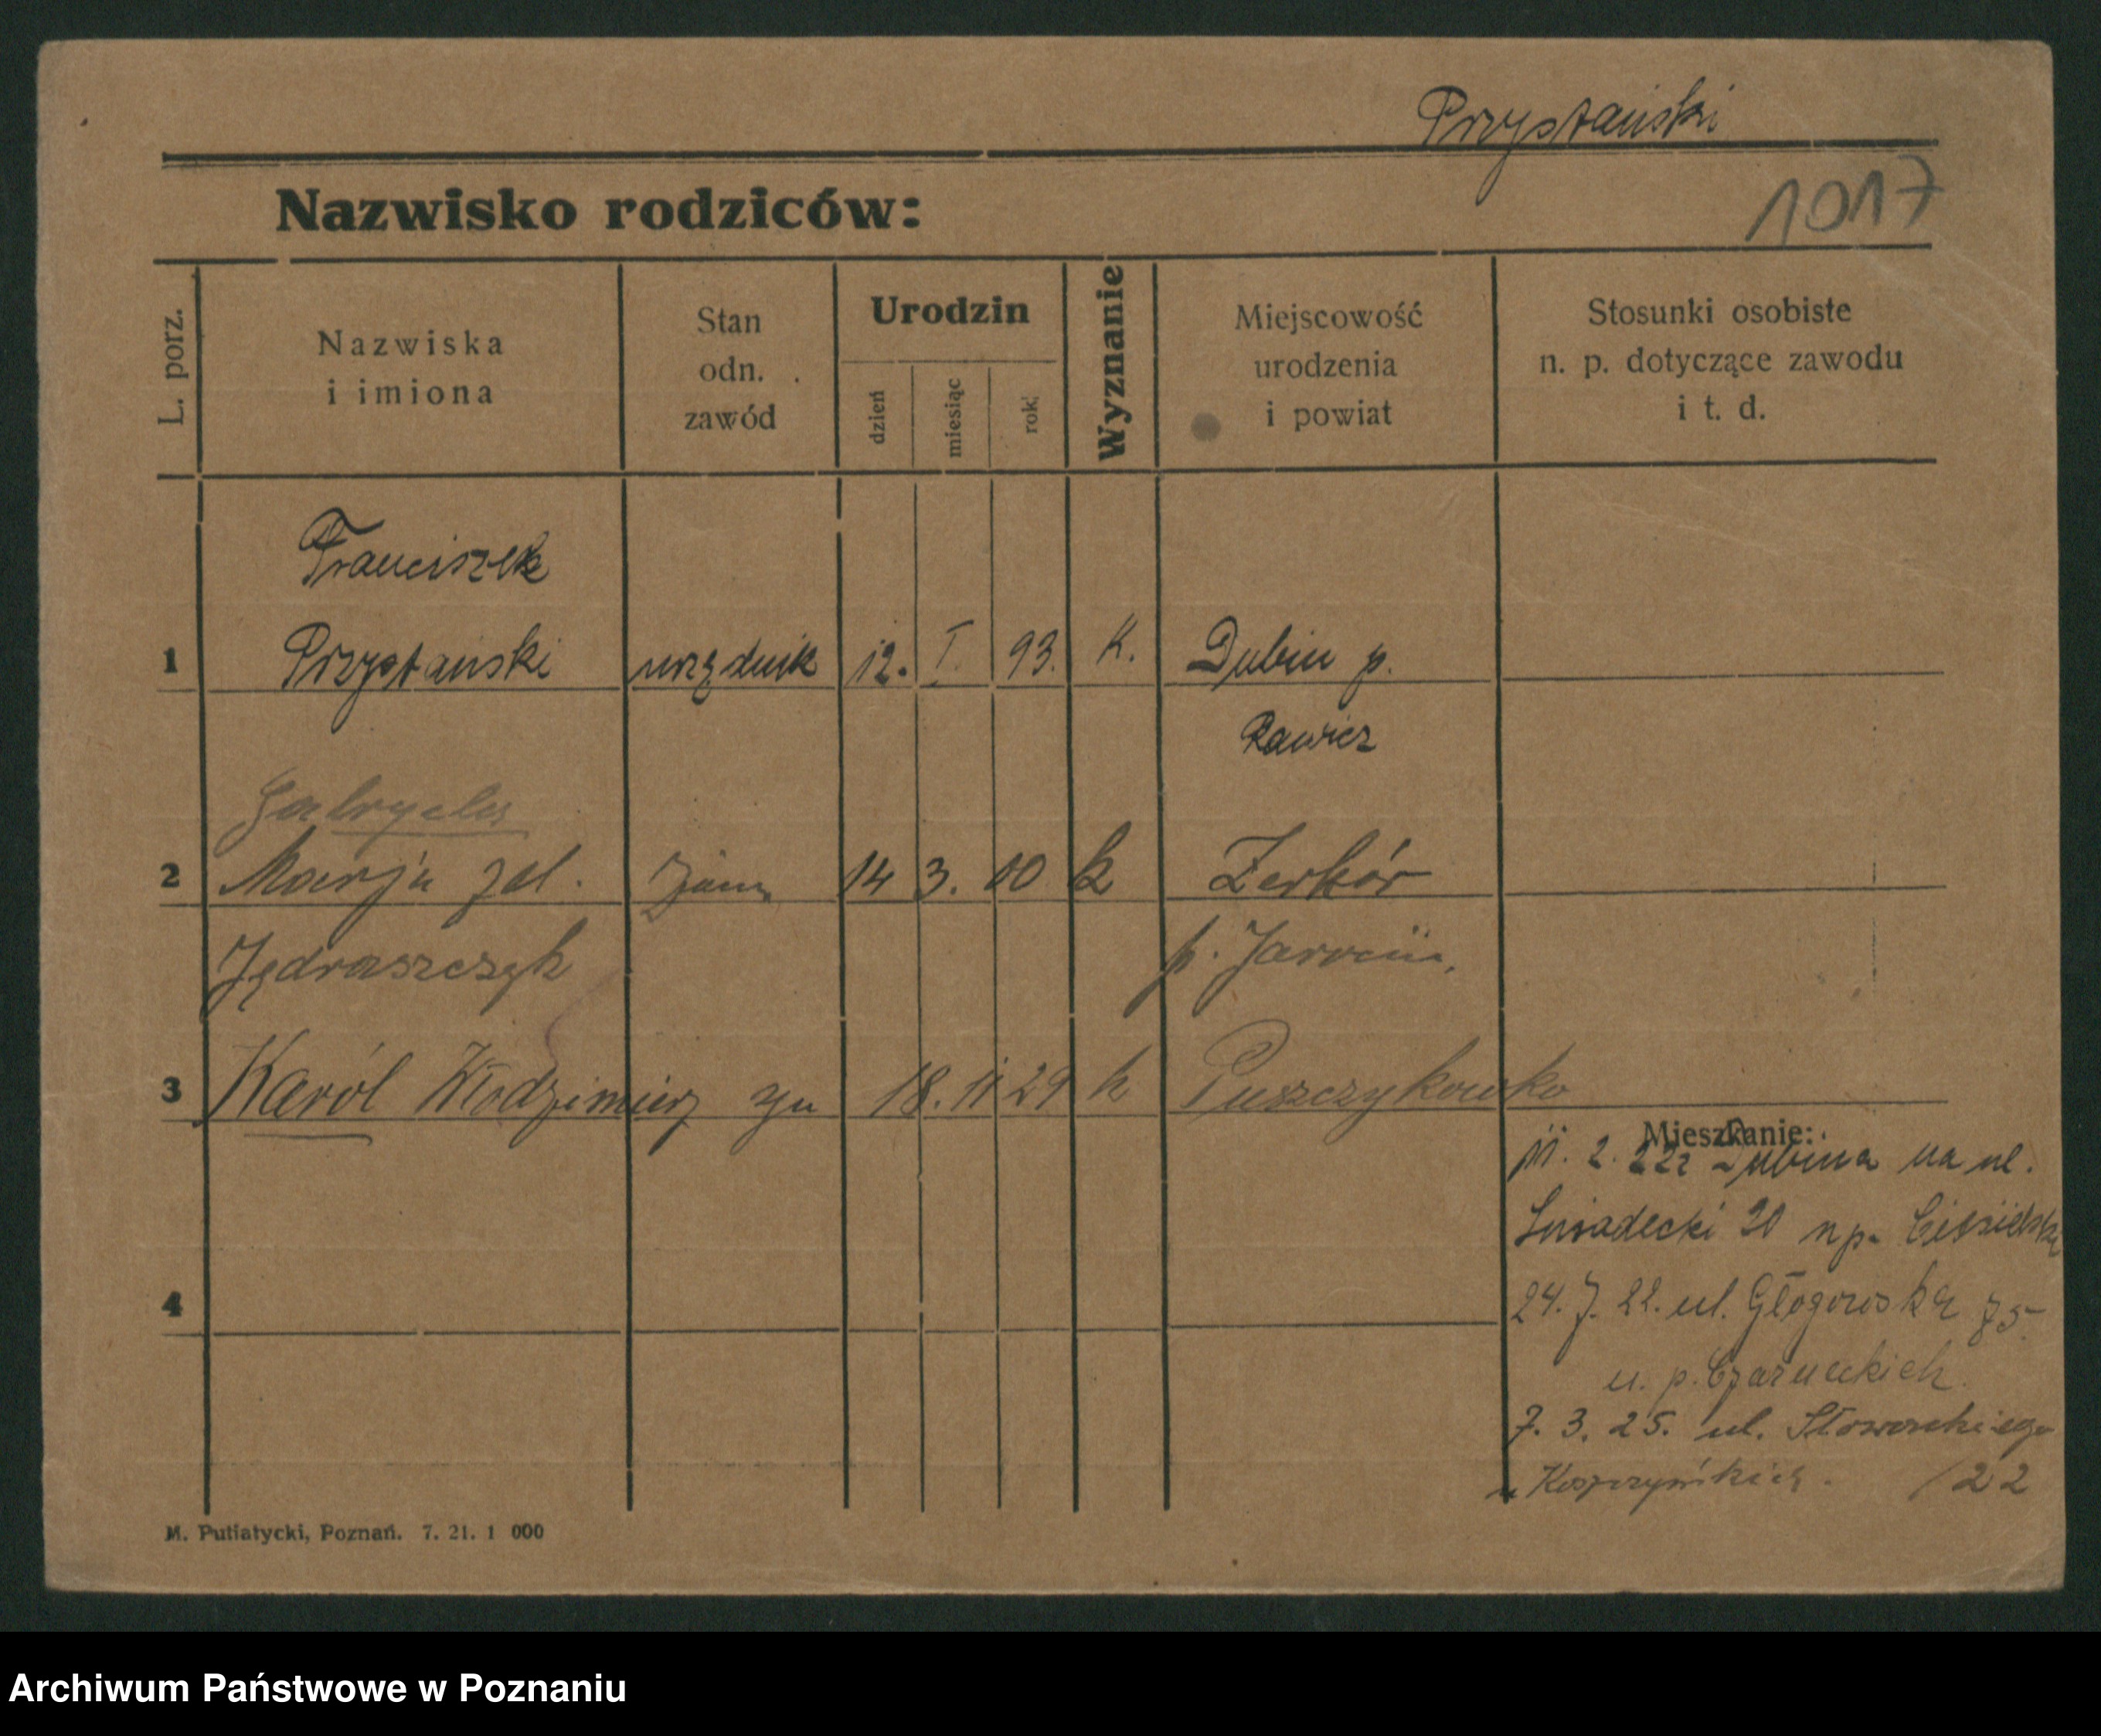 Przystański
1017
Nazwisko rodziców:
L. porz.
Nazwiska
i imiona
Stan
odn.
zawód
Urodzin
dzień
miesiąc
rok
Wyznanie
Miejscowość
urodzenia
i powiat
Stosunki osobiste
n. p. dotyczące zawodu
i t. d.
Franciszek
1 Przystański urzędnik 12. I. 93. K. Dubin p.
Rawicz
Gabryela
2 Marja żona 14 3. 00 k Żerków
Jędraszczyk p. Jarocin.
3 Karól Włodzimierz syn 18. 11 29 k Puszczykowko
Mieszkanie:
2. 22 z Dubina na ul.
Śniadecki 20 n p.
4
24. 7. 22. ul. Głogowska 75
u. p. Czarneckich.
7. 3. 25. ul. Słowackiego
u 22
M. Putiatycki, Poznań. 7. 21. 1 000
Archiwum Państwowe w Poznaniu